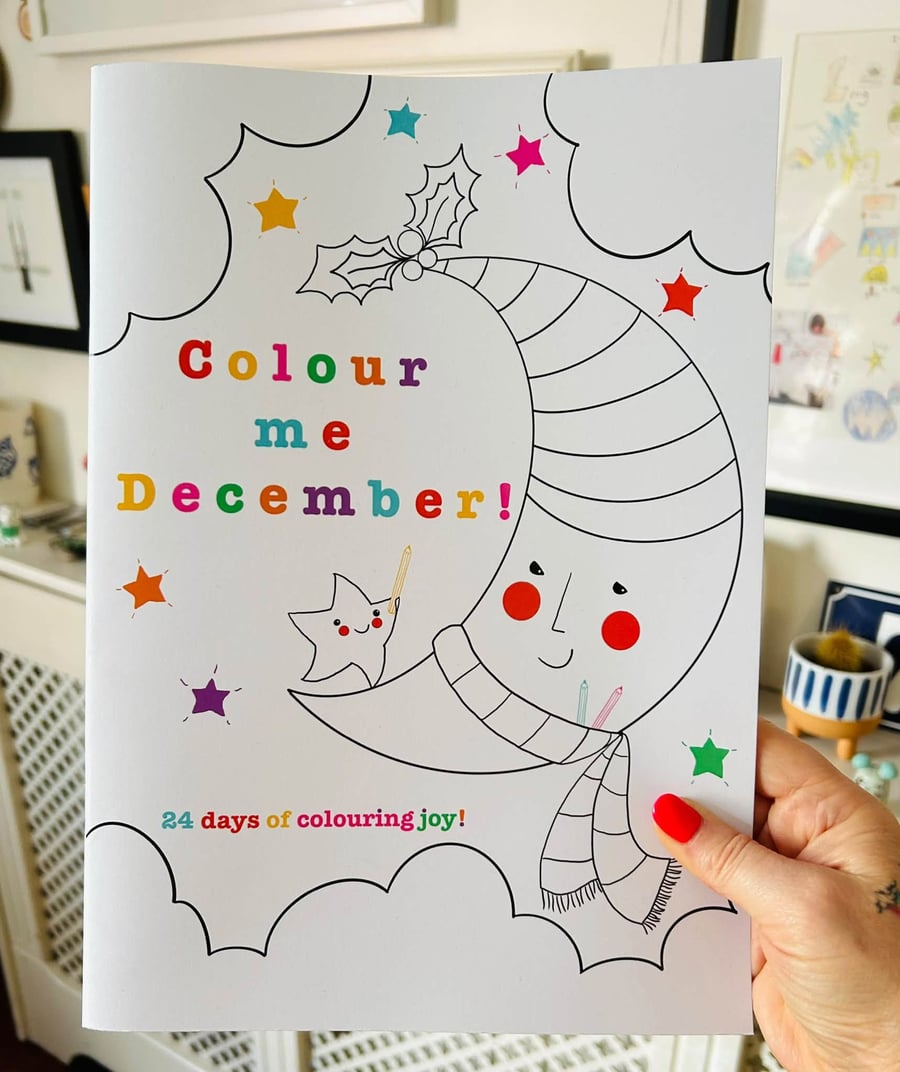 Colour
me
December!
24 days of colouring joy!